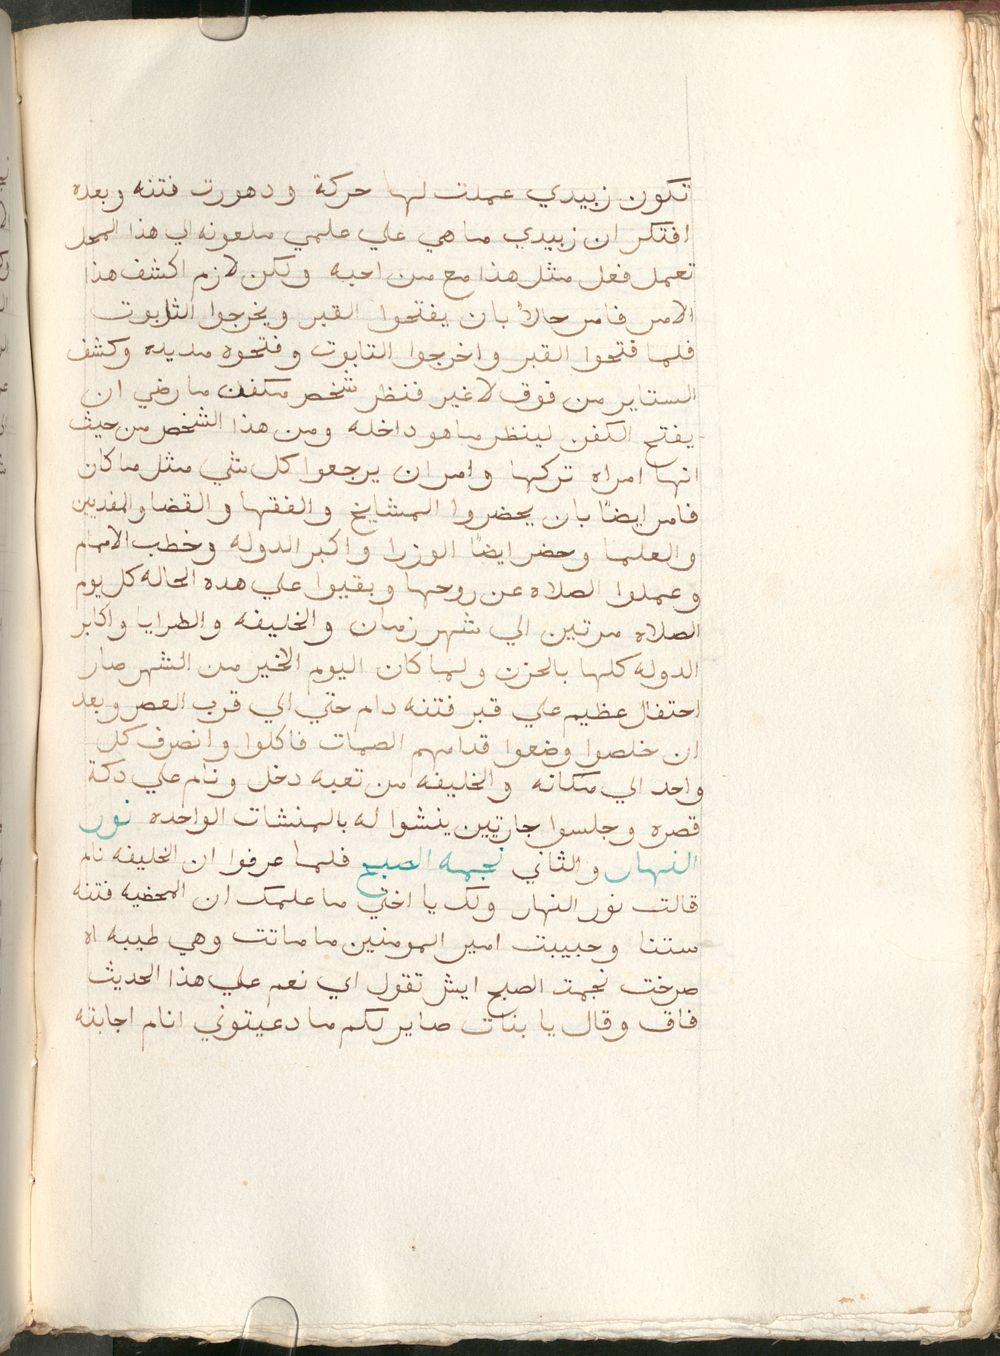 تكون زبيدي عملت لها حركة ودهورت فتنه وبعده
افتكر ان زبيدي ما هي علي علمي ملعونه الي هذا المحل
تعمل فعل مثل هذا مع من احبه ولكن لازم اكشف هذا
الامر فامر حالاً بان يفتحوا القبر ويخرجوا التابوت
فلما فتحوا القبر واخرجوا التابوت وفتحوه مد يده وكشف
الستاير من فوق لا غير فنظر شخص مكفن ما رضي ان
يفتح الكفن لينظر ما هو داخله ومن هذا الشخص من حيث
انها امراه تركها وامر ان يرجعوا كل شي مثل ما كان
فامر ايضاً بان يحضروا المشايخ والفقها والقضا والمفديين
والعلما وحضر ايضاً الوزرا واكبر الدوله وخطب الامام
وعملوا الصلاه عن روحها وبقيوا علي هده الحاله كل يوم
الصلاه مرتين الي شهر زمان والخليفه والطرايا واكابر
الدوله كلها بالحزن ولما كان اليوم الاخير من الشهر صار
احتفال عظيم علي قبر فتنه دام حتي الي قرب العصر وبعد
ان خلصوا وضعوا قدامهم الصمات فاكلوا وانصرف كل
واحد الي مكانه والخليفه من تعبه دخل ونام علي دكة
قصره وجلسوا جارتيين ينشوا له بالمنشات الواحده نور
النهار والثاني نجمه الصبح فلما عرفوا ان الخليفه نام
قالت نور النهار ولك يا اختي ما علمك ان المحضيه فتنه
ستنا وحبيبت امير المومنين ما ماتت وهي طيبه اه
صرخت نجمت الصبح ايش تقول اي نعم علي هذا الحديث
فاق وقال يا بنات صاير لكم ما دعيتوني انام اجابته